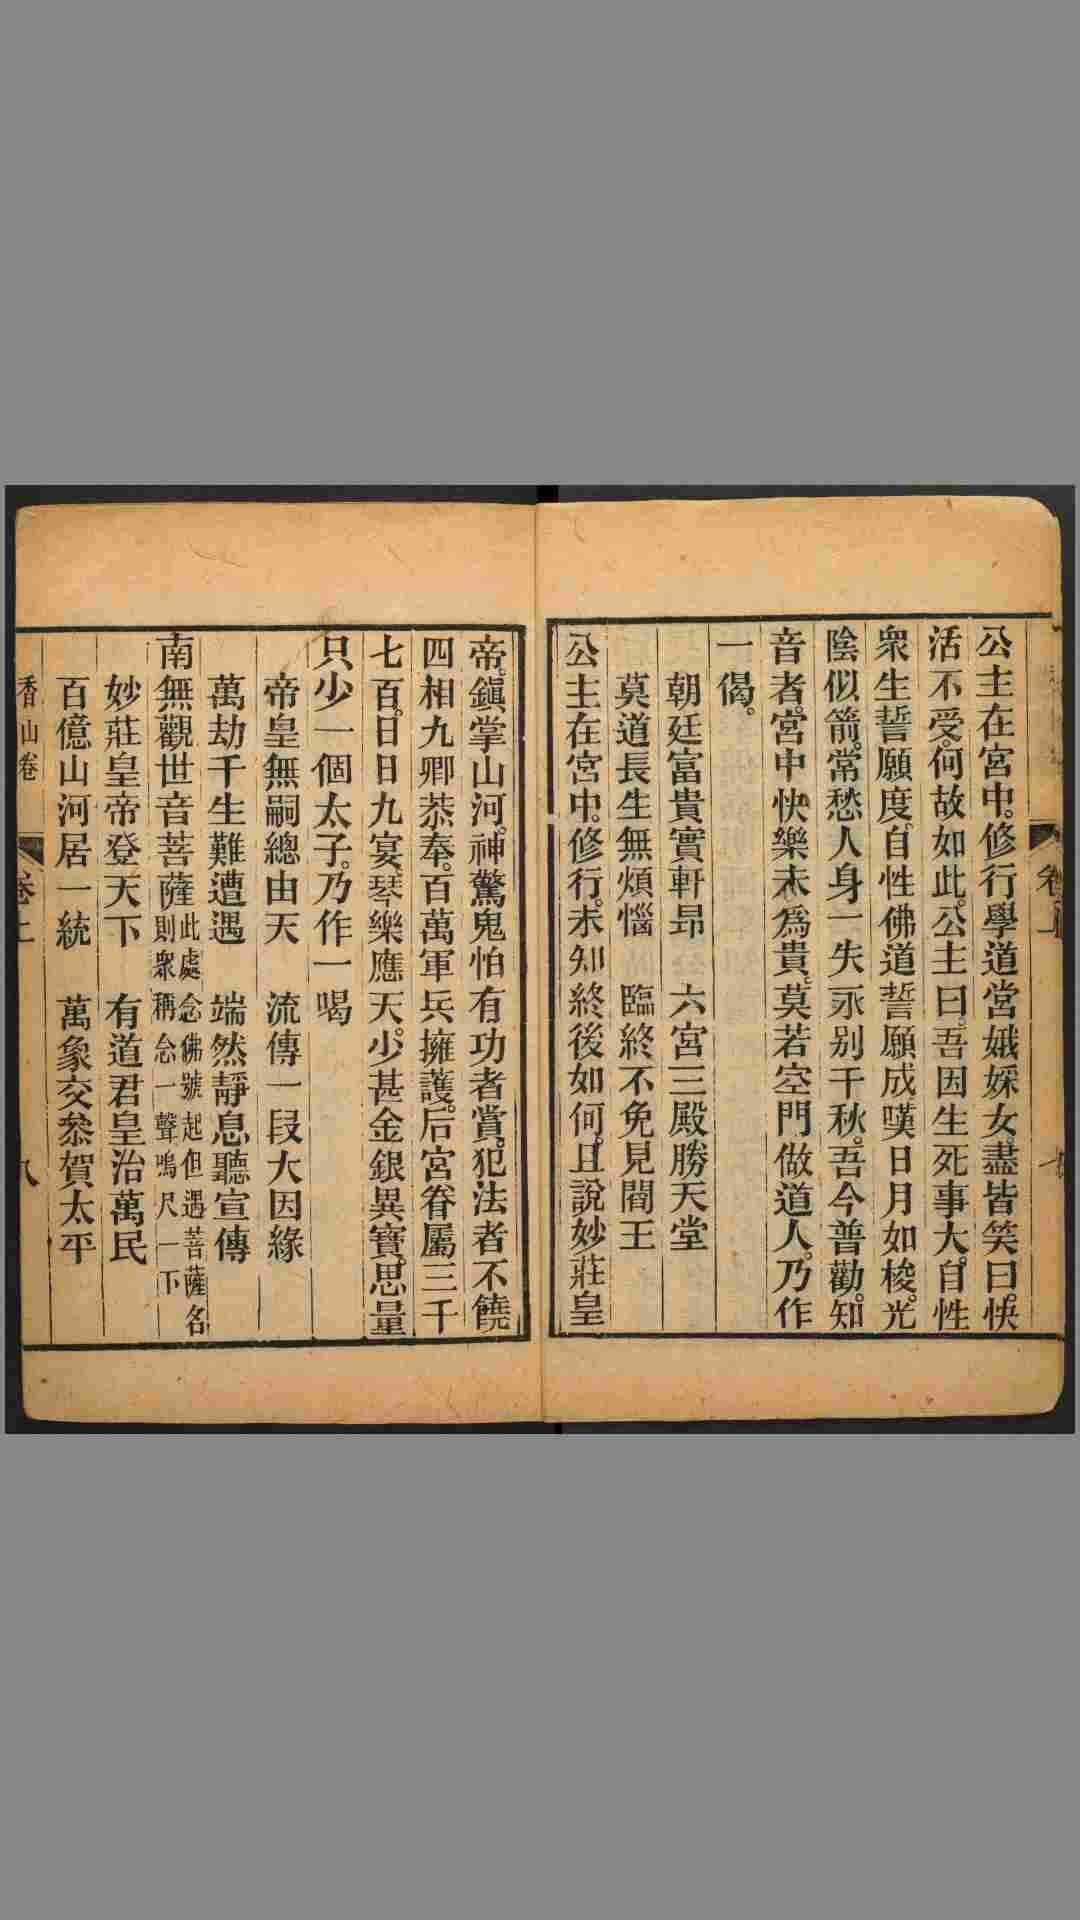 卷上
公主在宮中。修行學道宮娥婇女。盡皆笑曰。快
活不受。何故如此。公主曰。吾因生死事大。自性
衆生誓願度。自性佛道誓願成。嘆日月如梭。光
陰似箭。常愁人身一失永别千秋。吾今普勸。知
音者。宮中快樂未爲貴。莫若空門做道人。乃作
一偈。
朝廷富貴實軒昂 六宮三殿勝天堂
莫道長生無煩惱 臨終不免見閻王
公主在宮中。修行。未知終後如何。且說妙莊皇
帝。鎭掌山河。神驚鬼怕有功者賞。犯法者不饒
四相九卿恭奉。百萬軍兵擁護。后宮眷屬三千
七百。日日九宴。琴樂應天。少甚金銀異寶。思量
只少一個太子。乃作一喝
帝皇無嗣總由天 流傳一段大因緣
萬劫千生難遭遇 端然靜息聽宣傳
南無觀世音菩薩 此處念佛號起但遇菩薩名
則衆稱念一聲鳴尺一下
妙莊皇帝登天下 有道君皇治萬民
百億山河居一統 萬象交叅賀太平
香山卷 卷上 八